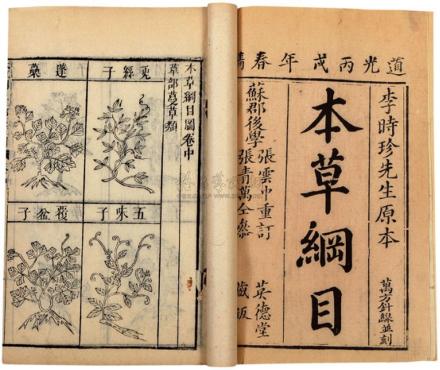 道光丙戌年春
李時珍先生原本
萬方針線並刻
本草綱目
蘇郡後學
張雲中重訂
張青萬仝參
英德堂
藏版
本草綱目圖卷中
草部蔓草類
五味子
覆盆子